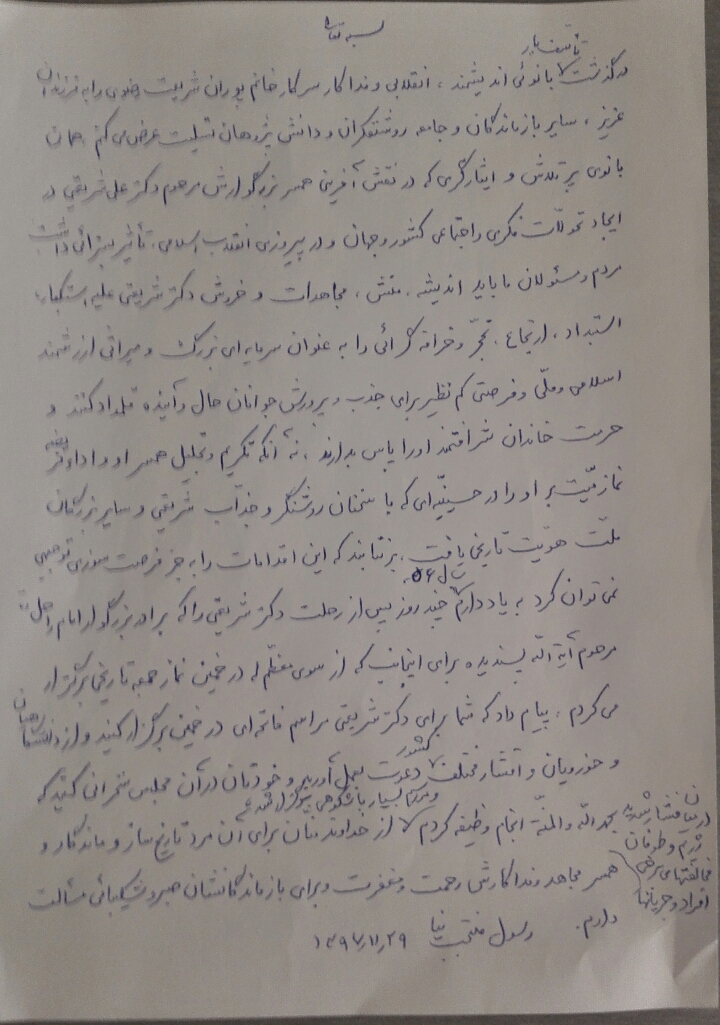 بسمه تعالی
تأسف بار
درگذشت بانوئی اندیشمند، انقلابی و فداکار سرکار خانم پوران شریعت رضوی را به فرزندان
عزیز، سایر بازماندگان و جامعه روشنفکران و دانش پژوهان تسلیت عرض می کنم همان
بانوی پرتلاش و ایثارگری که در نقش آفرینی همسر بزرگوارش مرحوم دکتر علی شریعتی در
ایجاد تحولات فکری و اجتماعی کشور و جهان و در پیروزی انقلاب اسلامی، تأثیر بسزائی داشت
مردم و مسئولان ما باید اندیشه، منش، مجاهدات و خروش دکتر شریعتی علیه استکبار،
استبداد، ارتجاع، تحجّر و خرافه گرائی را به عنوان سرمایه ای بزرگ و میراثی ارزشمند
اسلامی و ملّی و فرصتی کم نظیر برای جذب و پرورش جوانان حال و آینده قلمداد کنند و
حرمت خاندان شرافتمند او را پاس بدارند، نه آنکه تکریم و تجلیل همسر او و اداء فریضه
نماز میّت بر او را در حسینیّه ای که با سخنان روشنگر و جذّاب شریعتی و سایر بزرگان
ملّت هویّت تاریخی یافت، برنتابند که این اقدامات را به جز فرصت سوزی توجیهی
نمی توان کرد به یاد دارم سال ۵۶ چند روز پس از رحلت دکتر شریعتی را که برادر بزرگوار امام راحل
مرحوم آیة الله پسندیده برای اینجانب که از سوی معظّم له در خمین نماز جمعه تاریخی برگزار
می کردم، پیام داد که شما برای دکتر شریعتی مراسم فاتحه ای در خمین برگزار کنید و از دانشگاهیان
و حوزویان و اقشار مختلف کشور دعوت بعمل آورید و خودتان در آن مجلس سخنرانی کنید که
بحمدالله والمنّة انجام وظیفه کردم و مراسم بسیار باشکوهی برگزار شد از خداوند منان برای آن مرد تاریخ ساز و ماندگار و
همسر مجاهد و فداکارش رحمت و مغفرت و برای بازماندگانشان صبر و شکیبائی مسألت
دارم. رسول منتجب نیا ۱۳۹۷/۱۱/۲۹
فشار شدید
رژیم و طرفان
مخالفتهای برخی
افراد و جریانها